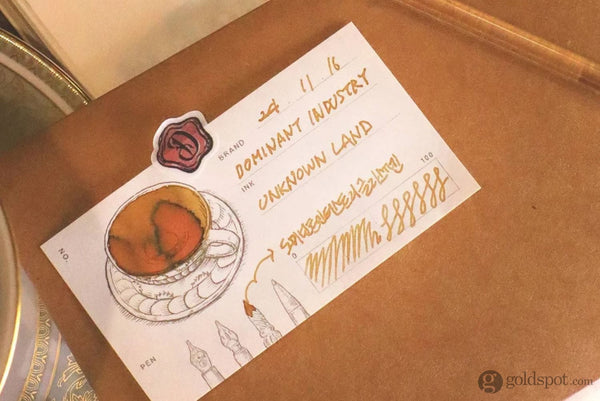 24 11 16
BRAND DOMINANT INDUSTRY
INK UNKNOWN LAND
NO.
0 100
PEN
goldspot.com